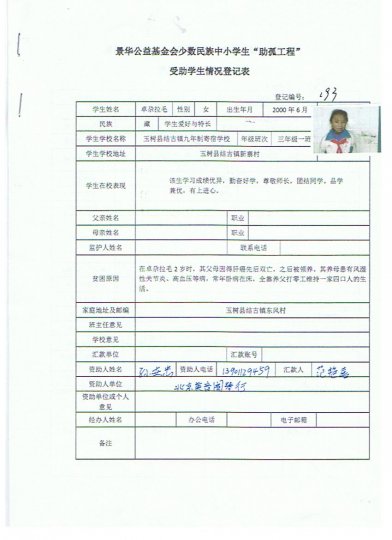 景华公益基金会少数民族中小学生“助孤工程”
受助学生情况登记表
登记编号： 193
学生姓名 卓尕拉毛 性别 女 出生年月 2000年6月
民族 藏 学生爱好与特长
学生学校名称 玉树县结古镇九年制寄宿学校 年级班次 三年级一班
学生学校地址 玉树县结古镇新寨村
学生在校表现
该生学习成绩优异，勤奋好学，尊敬师长，团结同学，品学
兼优，有上进心。
父亲姓名 职业
母亲姓名 职业
监护人姓名 联系电话
贫困原因
在卓尕拉毛2岁时，其父母因得肝癌先后双亡，之后被领养，其养母患有风湿
性关节炎、高血压等病，常年卧病在床，全靠养父打零工维持一家四口人的生
活。
家庭地址及邮编 玉树县结古镇东风村
班主任意见
学校意见
汇款单位 汇款账号
资助人姓名 资助人电话 13901129459 汇款人
资助人单位 北京
资助单位或个人
意见
经办人姓名 办公电话 电子邮箱
备注